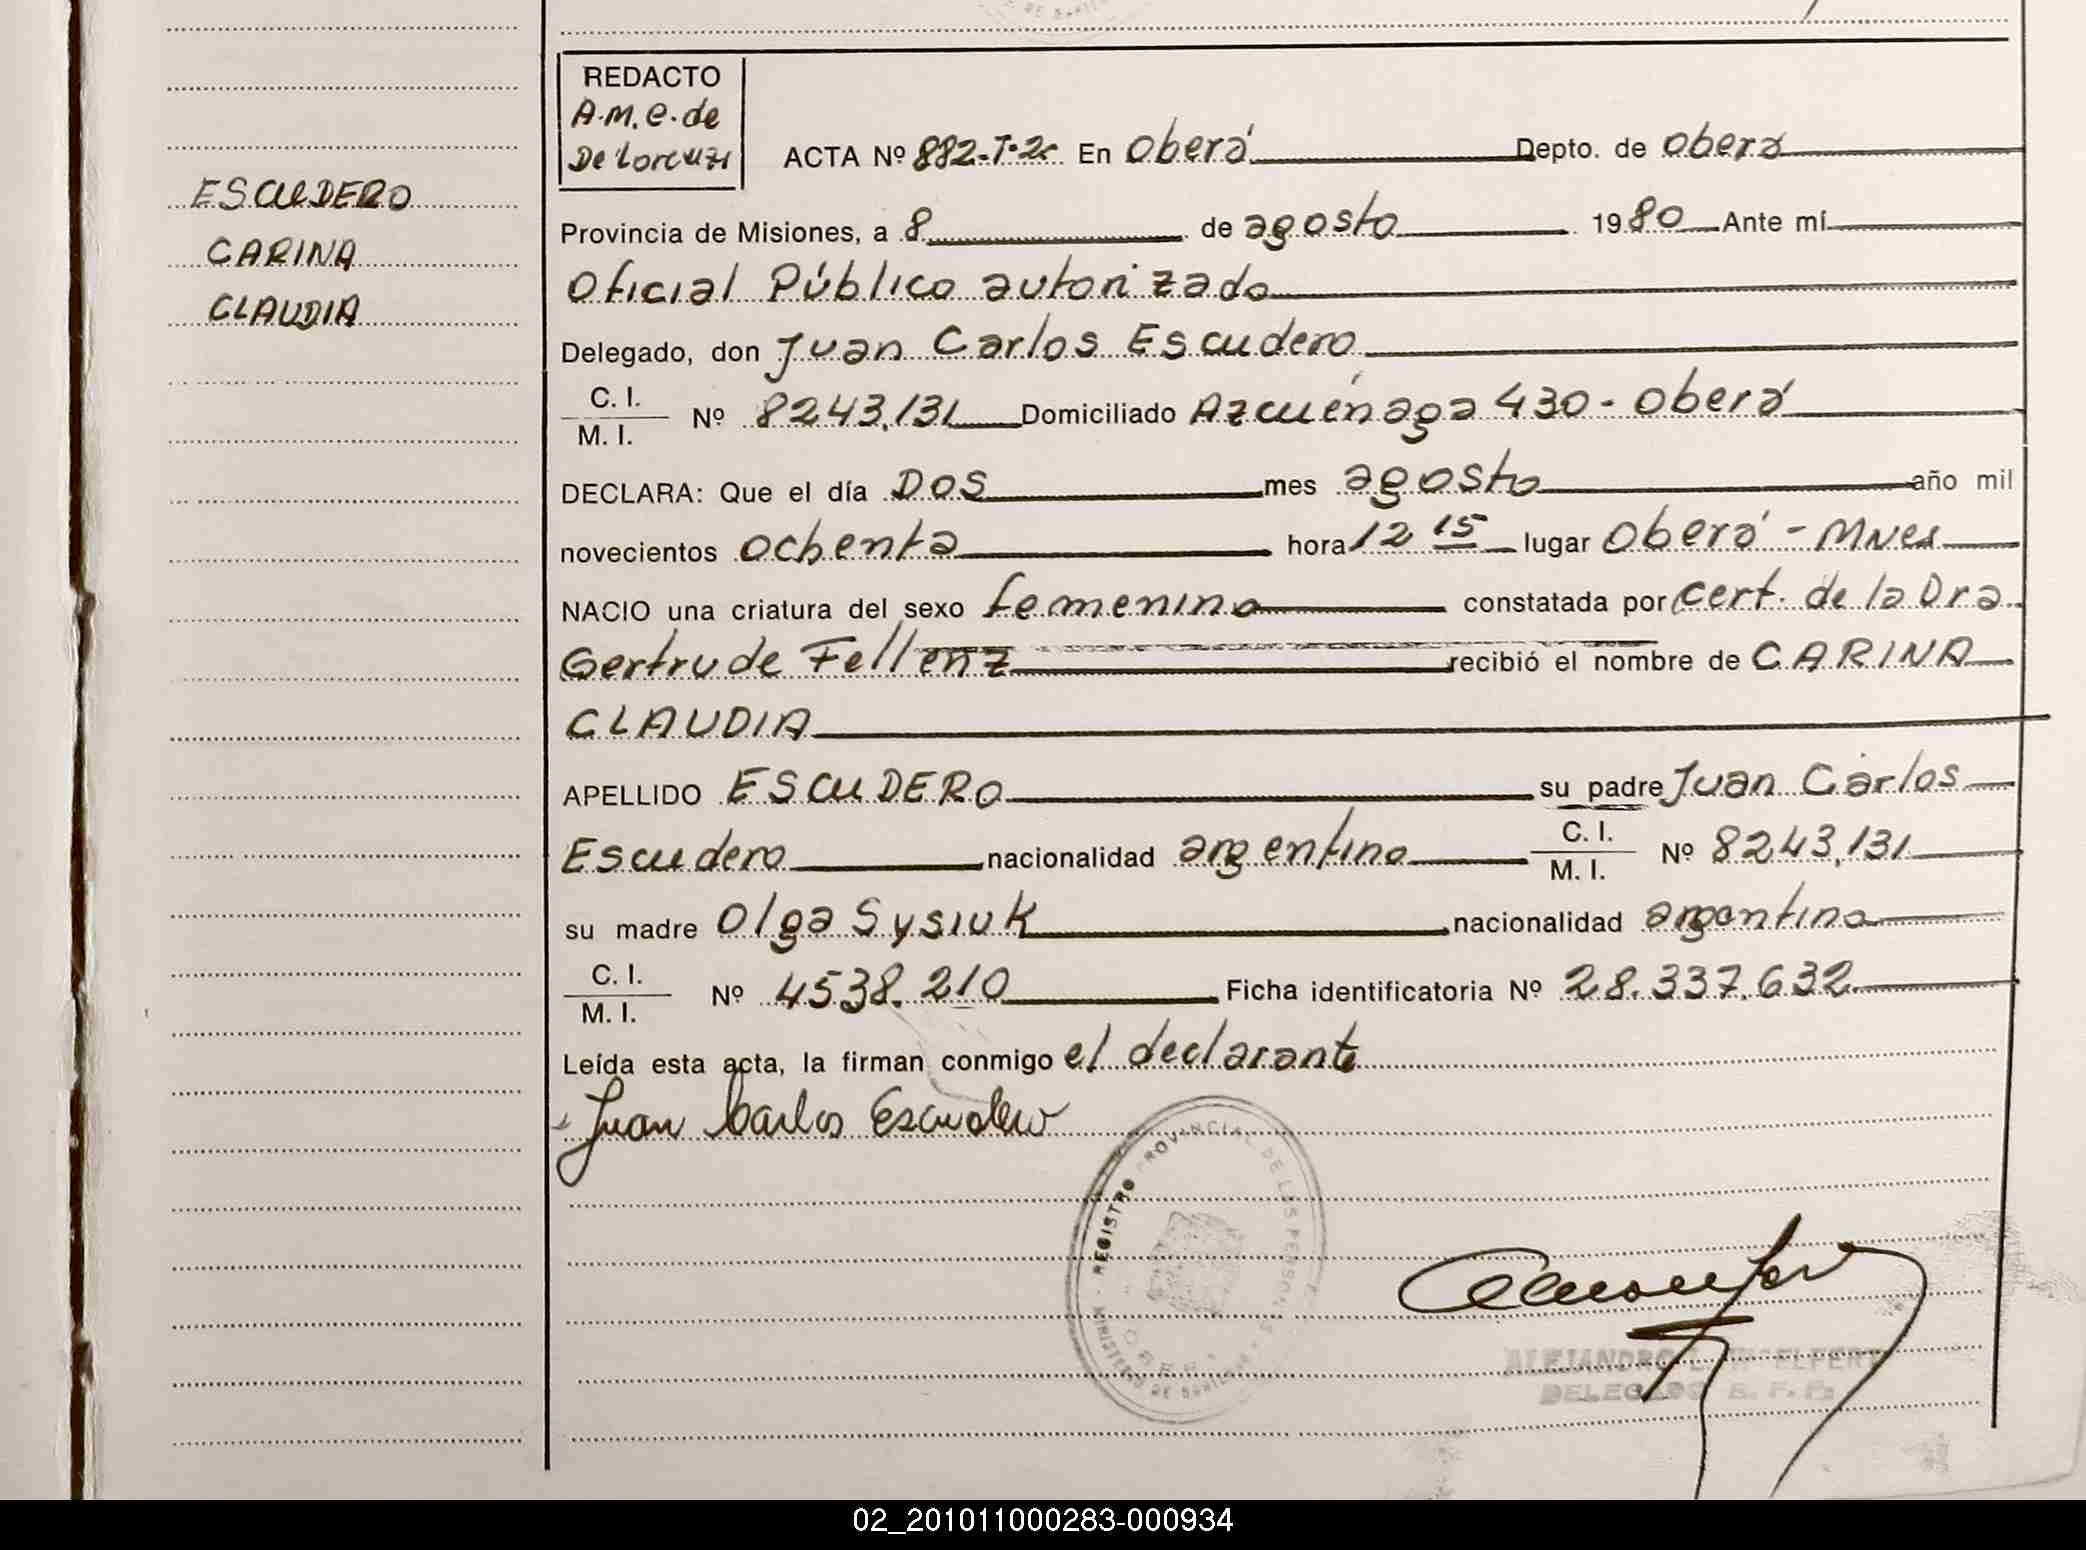 ESCUDERO
CARINA
CLAUDIA
REDACTO
A.M.C. de
De Lorenzi
ACTA Nº 882-T-2º En Oberá Depto. de Oberá
Provincia de Misiones, a 8 de agosto 1980 Ante mí
Oficial Público autorizado
Delegado, don Juan Carlos Escudero
C. I.
M. I. Nº 8243.131 Domiciliado Azcuénaga 430 - Oberá
DECLARA: Que el día DOS mes agosto año mil
novecientos ochenta hora 12 15 lugar Oberá - Mnes
NACIO una criatura del sexo femenino constatada por Cert. de la Dra
Gertrude Fellenz recibió el nombre de CARINA
CLAUDIA
APELLIDO ESCUDERO su padre Juan Carlos
Escudero nacionalidad argentino C. I.
M. I. Nº 8243.131
su madre Olga Sysiuk nacionalidad argentina
C. I.
M. I. Nº 4538.210 Ficha identificatoria Nº 28.337.632
Leída esta acta, la firman conmigo el declarante
Juan Carlos Escudero
REGISTRO PROVINCIAL DE LAS PERSONAS
MINISTERIO DE
OBERA
ALEJANDRO
DELEGADO R. P. P.
02_201011000283-000934